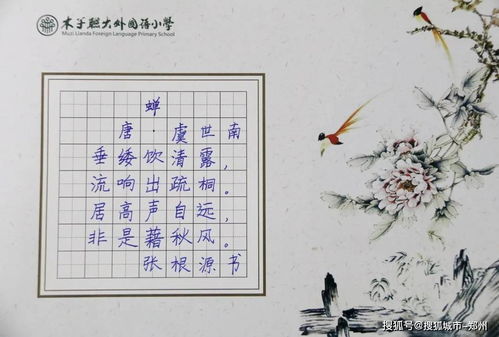 木子联大外国语小学
Muzi Lianda Foreign Language Primary School
蝉
唐·虞世南
垂緌饮清露，
流响出疏桐。
居高声自远，
非是藉秋风。
张根源书
搜狐号@搜狐城市-郑州